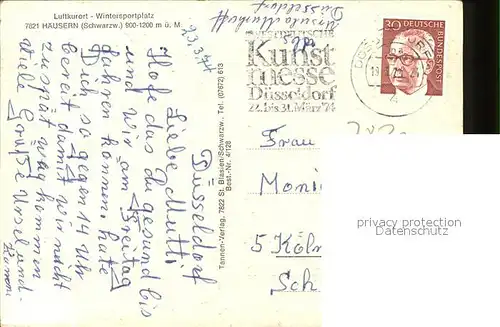 Luftkurort - Wintersportplatz
7821 HÄUSERN (Schwarzw.) 900-1200 m ü. M.
23.3.74
Düsseldorf
Liebe Mutti
Hofe das du gesund bis
und wir am Freitag
fahren können. halte
Dich so gegen 14 Uhr
bereit damit wir nicht
zuspät weg kommen
viele Grüße Ursel und
Tannen-Verlag, 7822 St. Blasien/Schwarzw. Tel. (07672) 613
Best.-Nr. 4/128
Düsseldorf
WESTDEUTSCHE
Kunst
messe
Düsseldorf
22. bis 31. März '74
30 DEUTSCHE
BUNDESPOST
Frau
Moni
5 Köln
Sch
privacy protection
Datenschutz